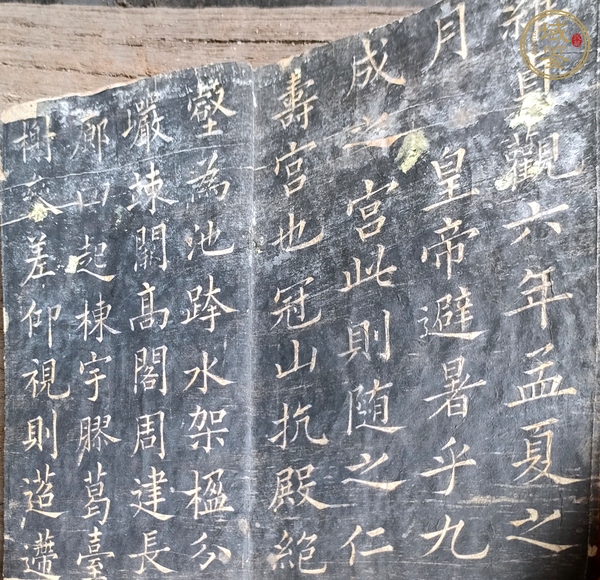 維貞觀六年孟夏之
月 皇帝避暑乎九
成之宮此則随之仁
壽宮也冠山抗殿絶
壑為池跨水架楹分
巖竦闕高閣周建長
廊四起棟宇膠葛臺
榭参差仰視則迢遰